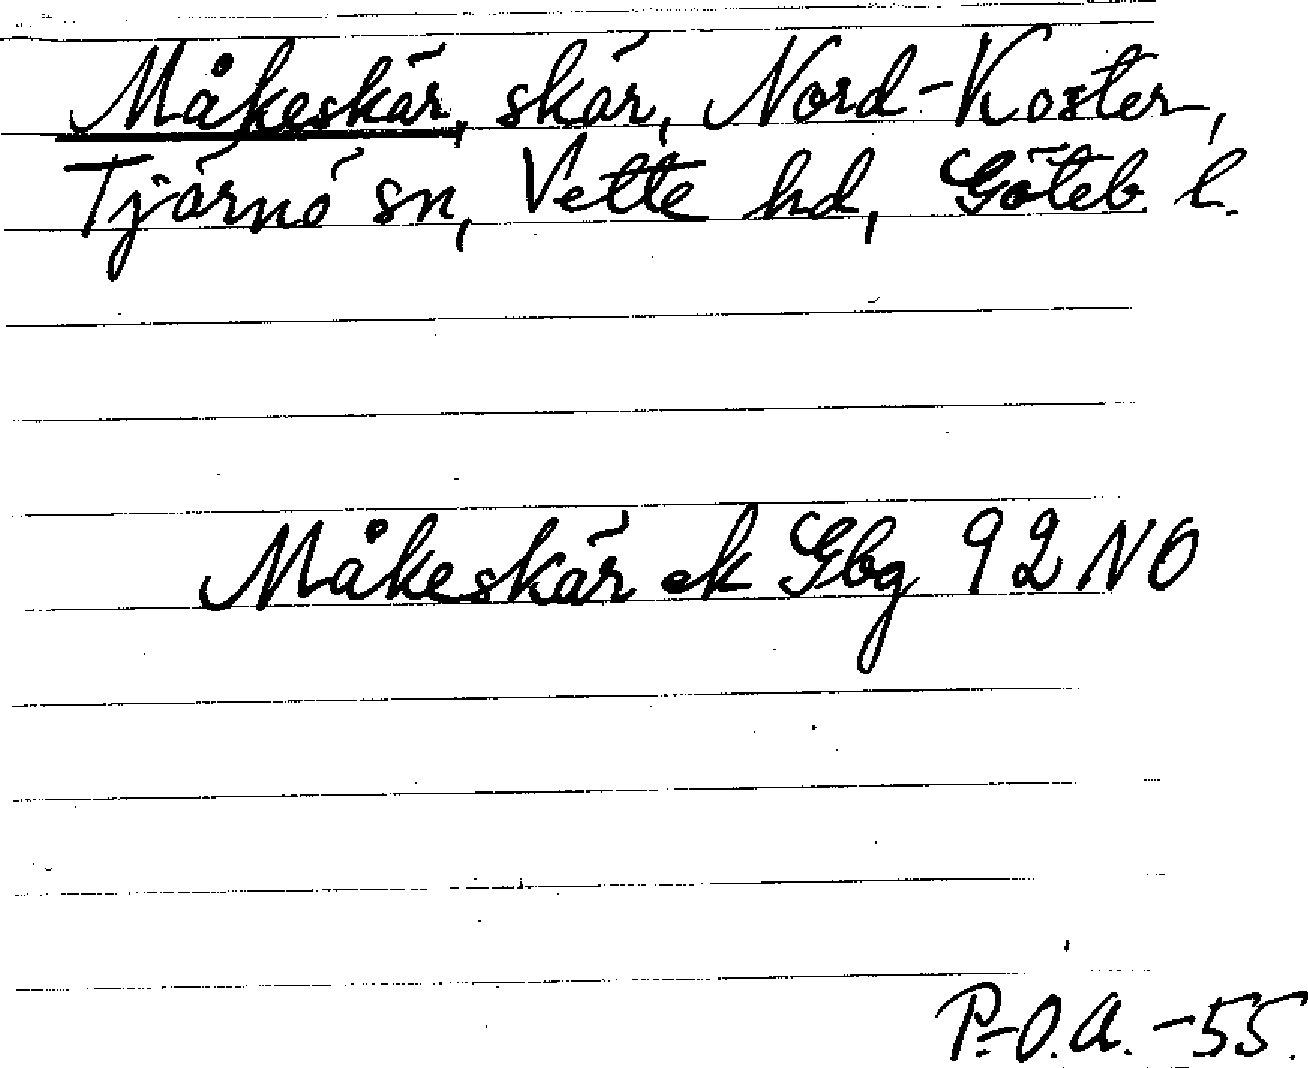 Måkeskär, skär, Nord-Koster,
Tjärnö sn, Vette hd, Göteb. l.
Måkeskär ek Gbg 92 NO
P.-O.A. -55.